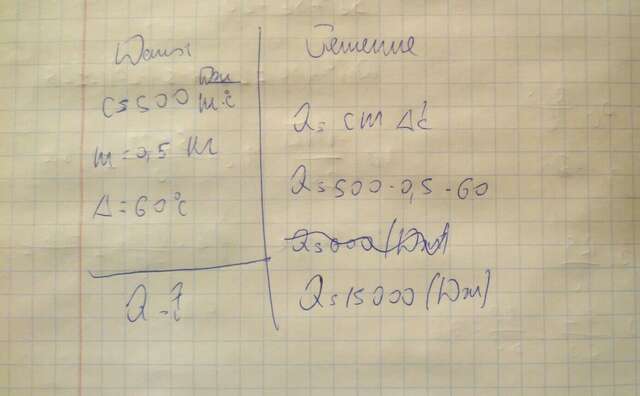 Дано:
c=500 Дж/кг·°C
m=0,5 кг
Δ=60°C
Q-?
Решение
Q= cm Δt
Q=500·0,5·60
Q=15000 (Дж)